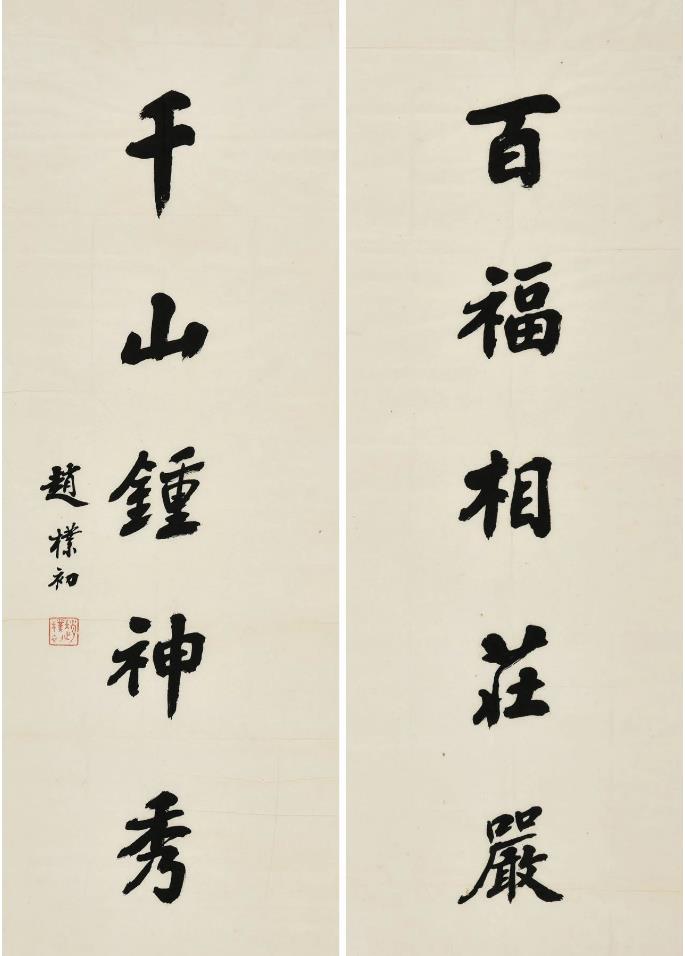 百福相莊嚴
千山鍾神秀
趙樸初